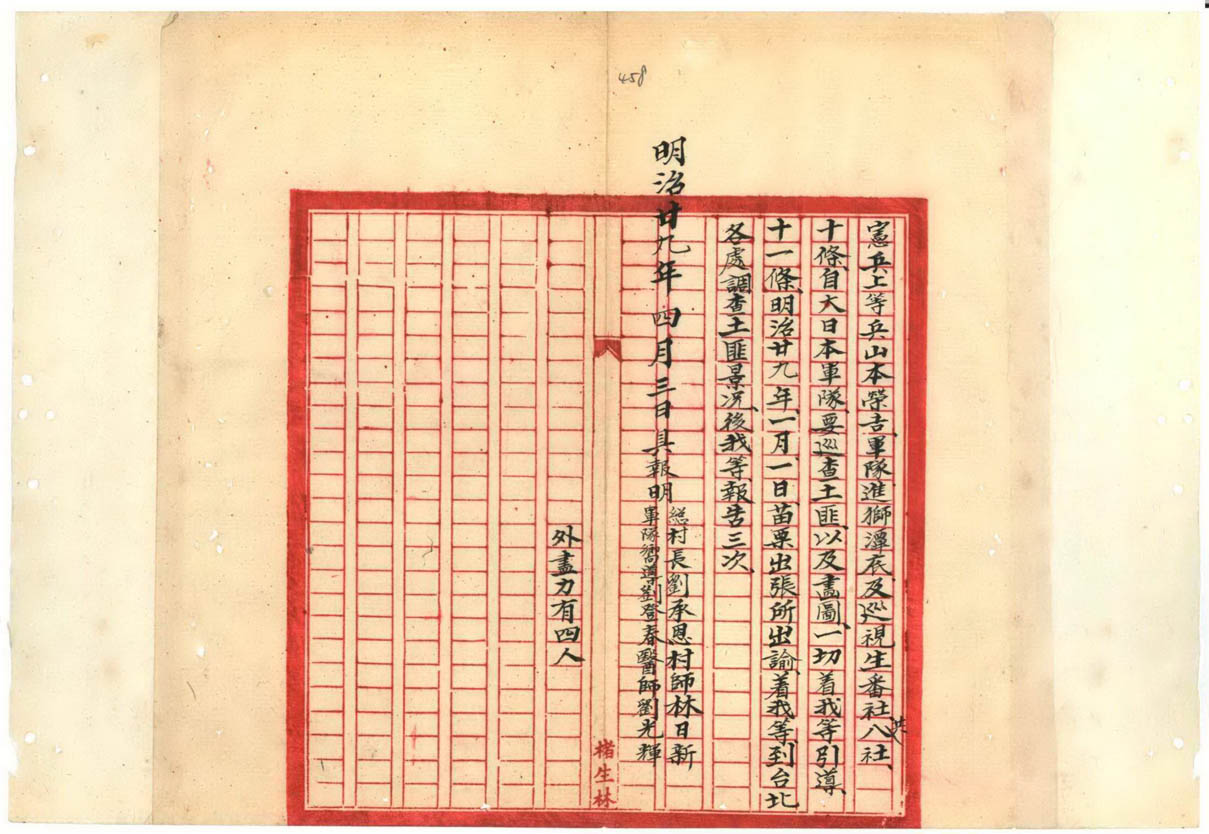 458
憲兵上等兵山本榮吉、軍隊進獅潭底及巡視生番社共八社、
十條、自大日本軍隊、要巡查土匪、以及畫圖、一切着我等引導、
十一條、明治廿九年、一月一日、苗栗出張所出諭、着我等到台北
各處調查土匪景況、後我等報告三次、
明治廿九年四月三日具報明
總村長劉承恩村師林日新
軍隊嚮導劉登春醫師劉光輝
楮生林
外盡力有四人